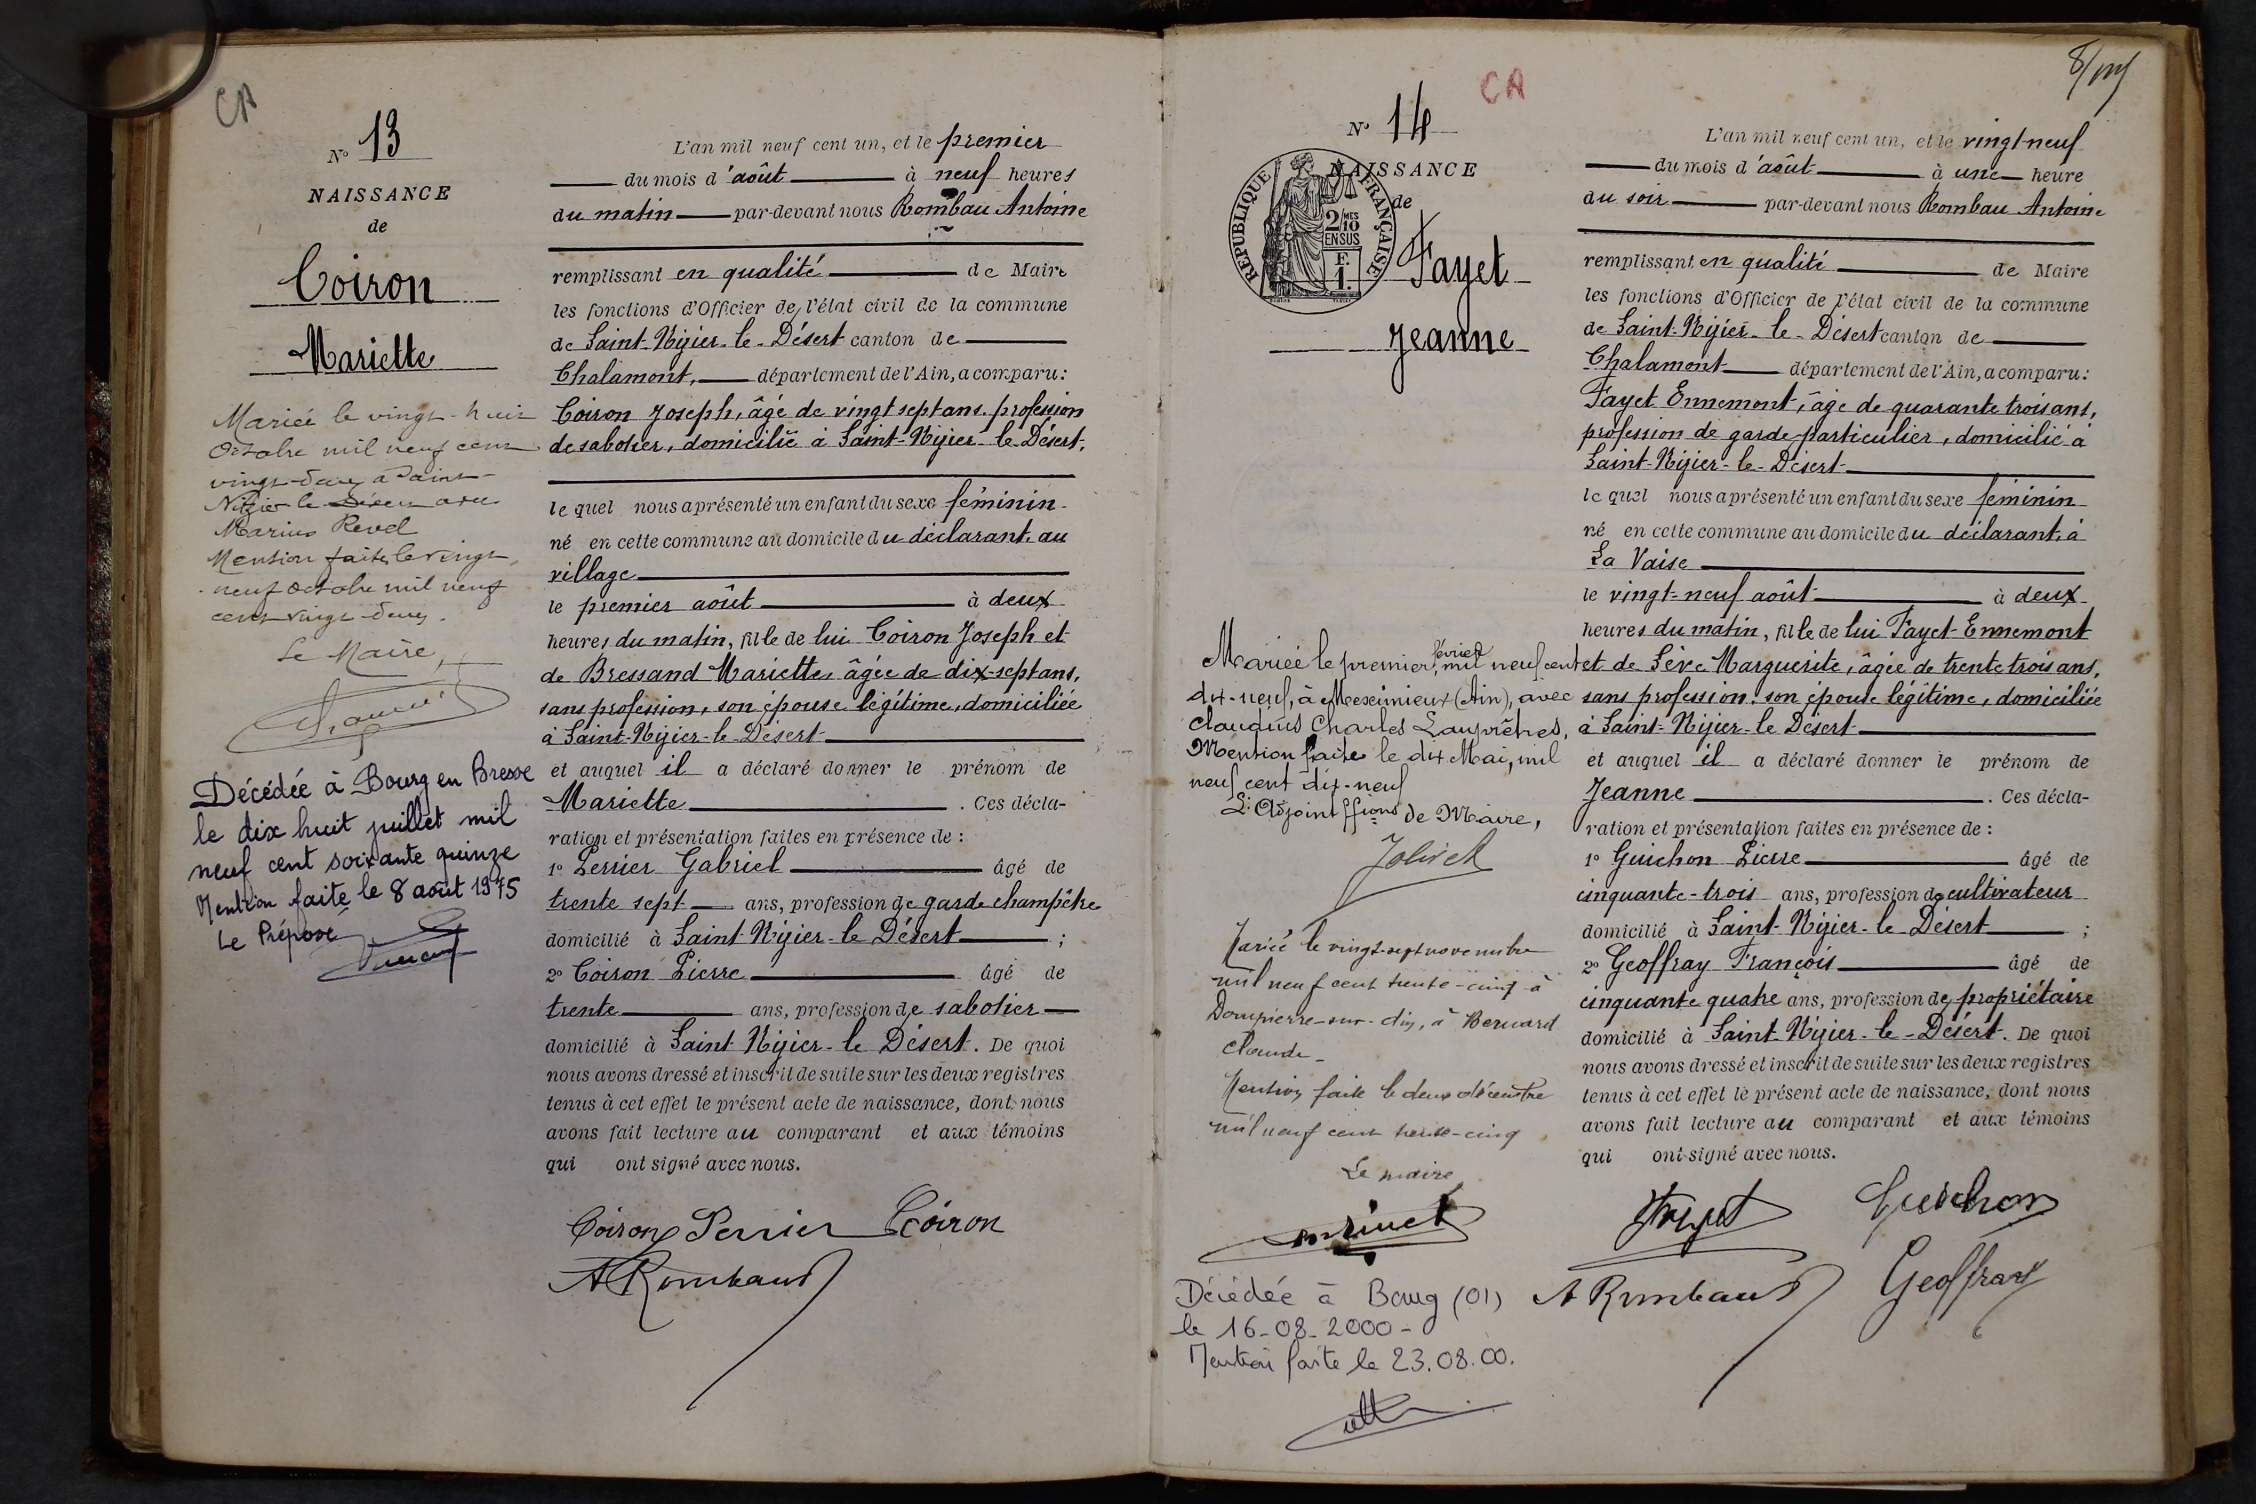 CA
N° 13
NAISSANCE
de
Coiron
Mariette
Mariée le vingt-huit
Octobre mil neuf cent
vingt-deux à Saint-
Nizier le Désert avec
Marius Revel
Mention faite le vingt
neuf octobre mil neuf
cent vingt-deux.
Le Maire,
Décédée à Bourg en Bresse
le dix huit juillet mil
neuf cent soixante quinze
Mention faite le 8 août 1975
Le Préposé
L'an mil neuf cent un, et le premier
du mois d'août à neuf heures
du matin par-devant nous Rombau Antoine
remplissant en qualité de Maire
les fonctions d'Officier de l'état civil de la commune
de Saint-Nizier-le-Désert canton de
Chalamont, département de l'Ain, a comparu:
Coiron Joseph, âgé de vingt sept ans. profession
de sabotier, domicilié à Saint-Nizier-le-Désert,
le quel nous a présenté un enfant du sexe féminin
né en cette commune au domicile du déclarant, au
village
le premier août à deux
heures du matin, fille de lui Coiron Joseph et
de Bressand Mariette âgée de dix-sept ans,
sans profession, son épouse légitime, domiciliée
à Saint-Nizier-le Désert
et auquel il a déclaré donner le prénom de
Mariette . Ces décla-
ration et présentation faites en présence de :
1° Perrier Gabriel âgé de
trente sept ans, profession de garde champêtre
domicilié à Saint-Nizier-le Désert ;
2° Coiron Pierre âgé de
trente ans, profession de sabotier
domicilié à Saint Nizier-le Désert. De quoi
nous avons dressé et inscrit de suite sur les deux registres
tenus à cet effet le présent acte de naissance, dont nous
avons fait lecture au comparant et aux témoins
qui ont signé avec nous.
Coiron Perrier Coiron
A Rombaud
CA
N° 14
NAISSANCE
de
RÉPUBLIQUE FRANÇAISE
2/10 MES
EN SUS
F.
1.
Fayet
Jeanne
Mariée le premier février mil neuf cent
dix-neuf, à Meximieux (Ain), avec
Claudius Charles Lauprêtres,
Mention faite le dix Mai, mil
neuf cent dix-neuf
L'Adjoint ffions de Maire,
Mariée le vingt-sept novembre
mil neuf cent trente-cinq à
Dompierre-sur-Ain, à Bernard
Claude
Mention faite le deux décembre
mil neuf cent trente-cinq
Le maire
Décédée à Bourg (01)
le 16-08-2000-
Mention faite le 23.08.00.
L'an mil neuf cent un, et le vingt-neuf
du mois d'août à une heure
du soir par-devant nous Rombau Antoine
remplissant en qualité de Maire
les fonctions d'Officier de l'état civil de la commune
de Saint-Nizier-le-Désert canton de
Chalamont département de l'Ain, a comparu:
Fayet Ennemont, âgé de quarante trois ans,
profession de garde-particulier, domicilié à
Saint-Nizier-le-Désert
le quel nous a présenté un enfant du sexe féminin
né en cette commune au domicile du déclarant, à
La Vaise
le vingt-neuf août à deux
heures du matin, fille de lui Fayet Ennemont
et de Sève Marguerite, âgée de trente trois ans,
sans profession, son épouse légitime, domiciliée
à Saint-Nizier-le Désert
et auquel il a déclaré donner le prénom de
Jeanne . Ces décla-
ration et présentation faites en présence de :
1° Guichon Pierre âgé de
cinquante-trois ans, profession de cultivateur
domicilié à Saint-Nizier-le Désert ;
2° Geoffray François âgé de
cinquante quatre ans, profession de propriétaire
domicilié à Saint-Nizier-le-Désert. De quoi
nous avons dressé et inscrit de suite sur les deux registres
tenus à cet effet le présent acte de naissance, dont nous
avons fait lecture au comparant et aux témoins
qui ont signé avec nous.
Fayet Guichon
A Rombaud Geoffray